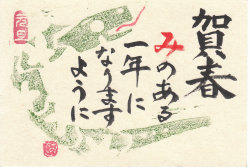 賀春
みのある
一年に
なります
ように
元旦